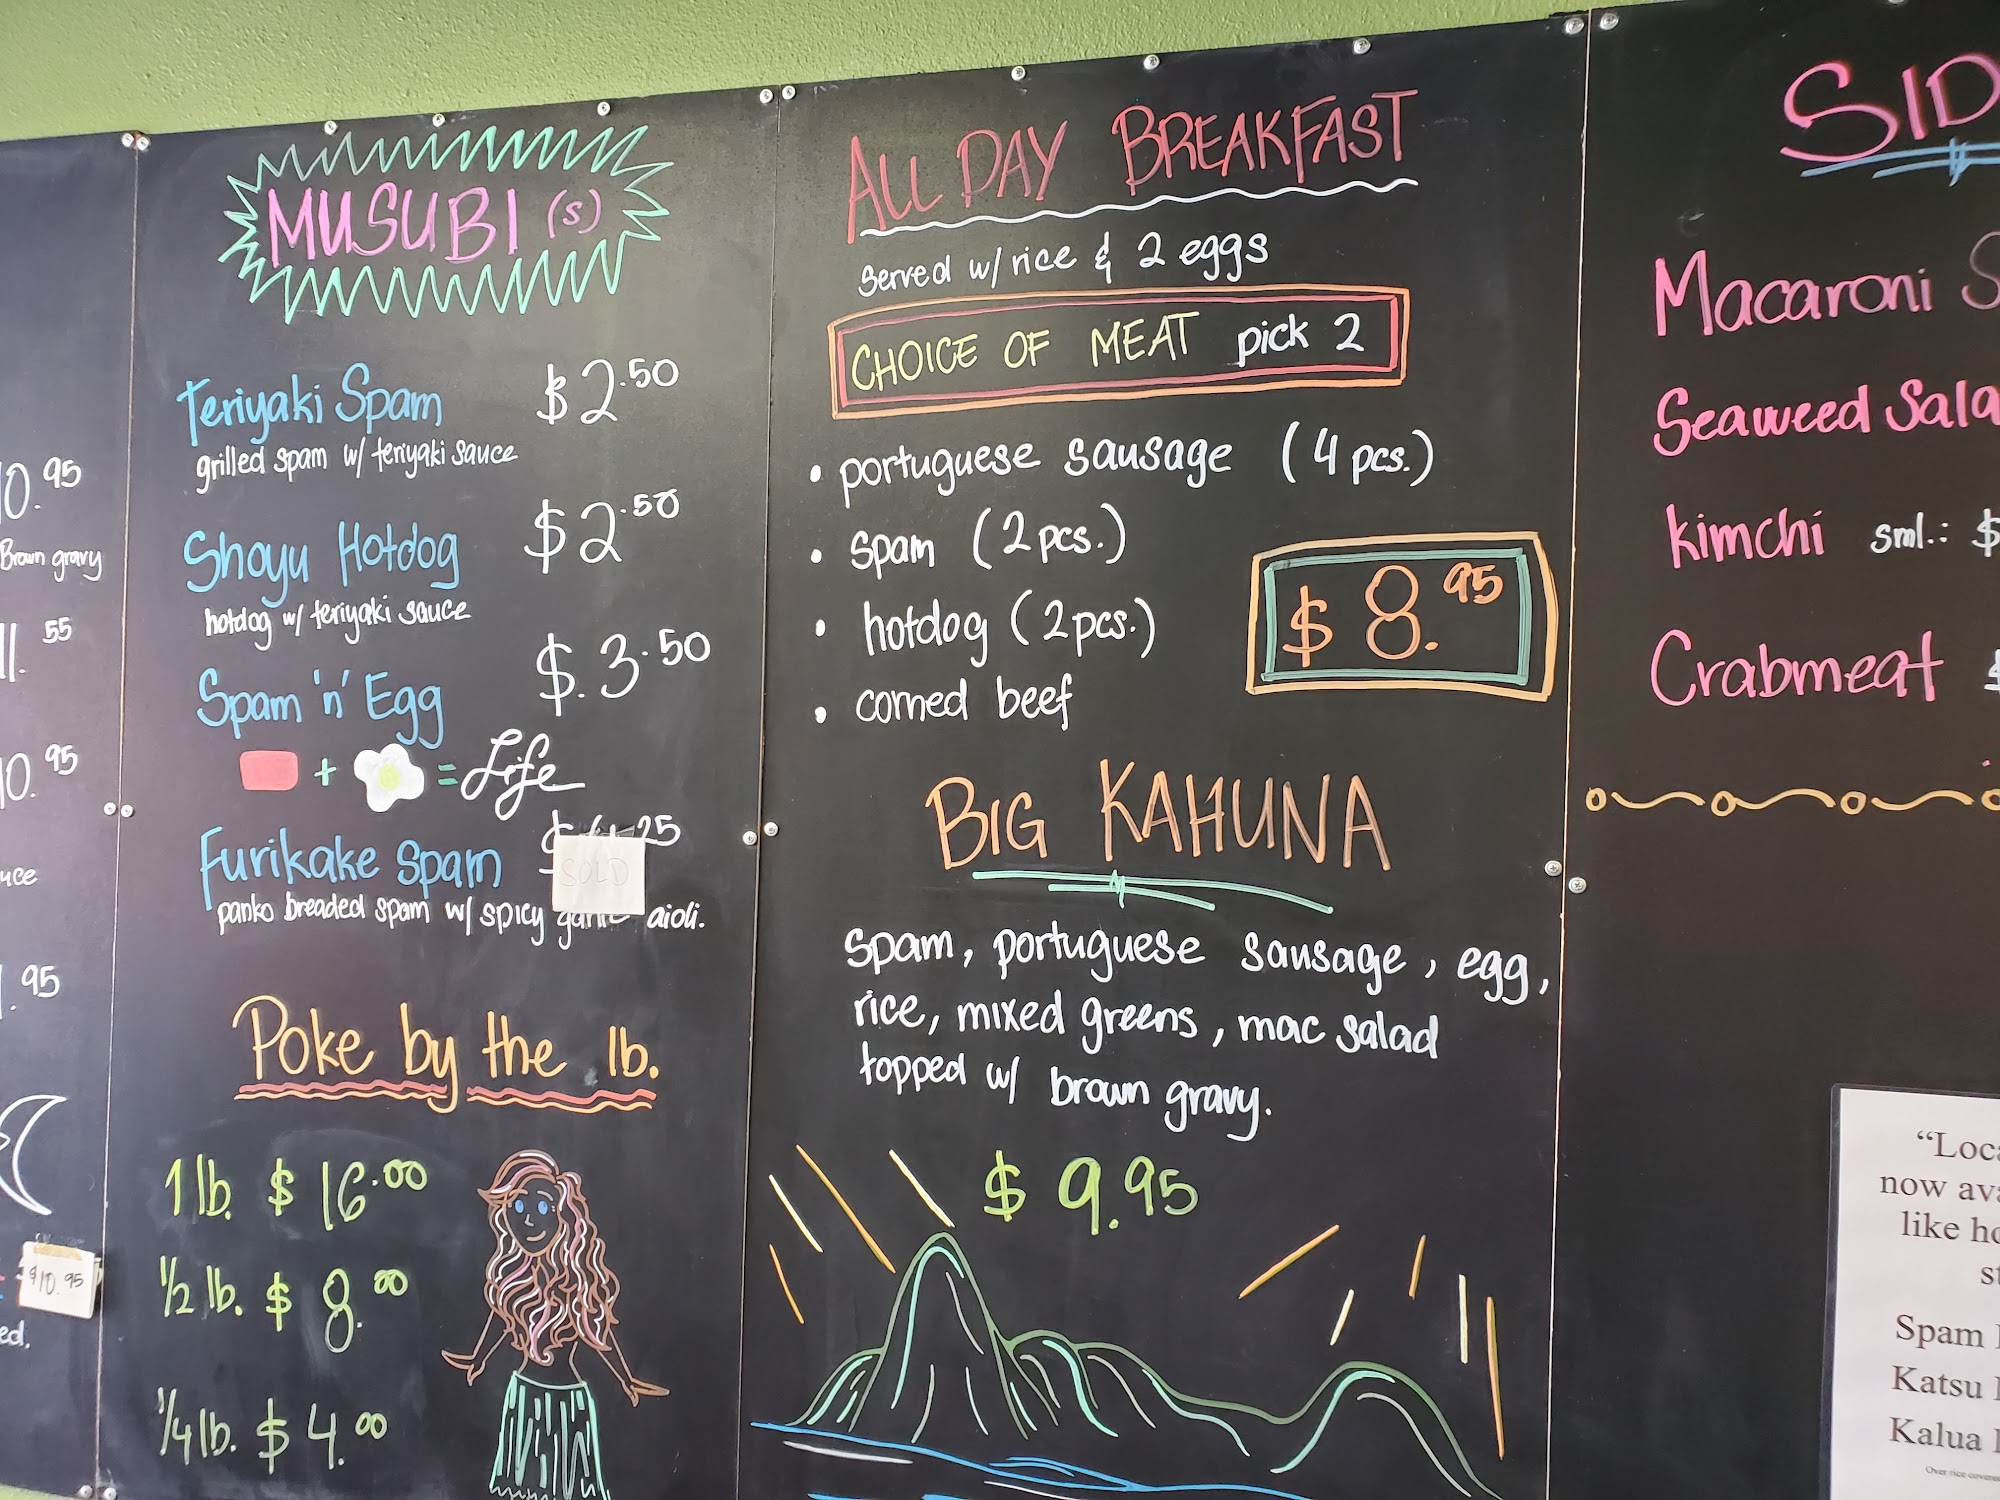 Brown gravy
55
95
95
$10.95
ed.
MUSUBI (s)
Teriyaki Spam $2.50
grilled spam w/ teriyaki sauce
Shoyu Hotdog $2.50
hotdog w/ teriyaki sauce
Spam 'n' Egg $.3.50
+ = Life
Furikake Spam
SOLD
panko breaded spam w/ spicy garlic aioli.
Poke by the lb.
1 lb. $ 16.00
1/2 lb. $ 8.00
1/4 lb. $ 4.00
ALL DAY BREAKFAST
served w/ rice & 2 eggs
CHOICE OF MEAT pick 2
• portuguese sausage (4 pcs.)
• spam (2 pcs.)
• hotdog (2 pcs.)
• corned beef
$ 8.95
BIG KAHUNA
spam, portuguese sausage, egg,
rice, mixed greens, mac salad
topped w/ brown gravy.
$ 9.95
SID
Macaroni S
Seaweed Sala
kimchi sml.: $
Crabmeat
“Loca
now ava
like ho
st
Spam
Katsu
Kalua
Over rice covere